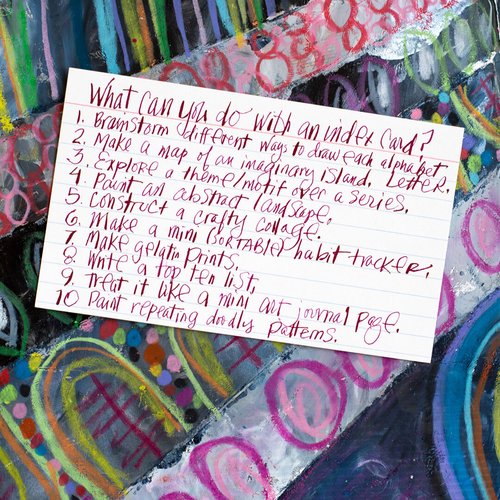 What can you do with an index card?
1. Brainstorm different ways to draw each alphabet letter.
2. Make a map of an imaginary island.
3. Explore a theme/motif over a series.
4. Paint an abstract landscape.
5. Construct a crafty collage.
6. Make a mini (sortable) habit tracker.
7. Make gelatin prints.
8. Write a top ten list.
9. Treat it like a mini art journal page.
10 Paint repeating doodly patterns.